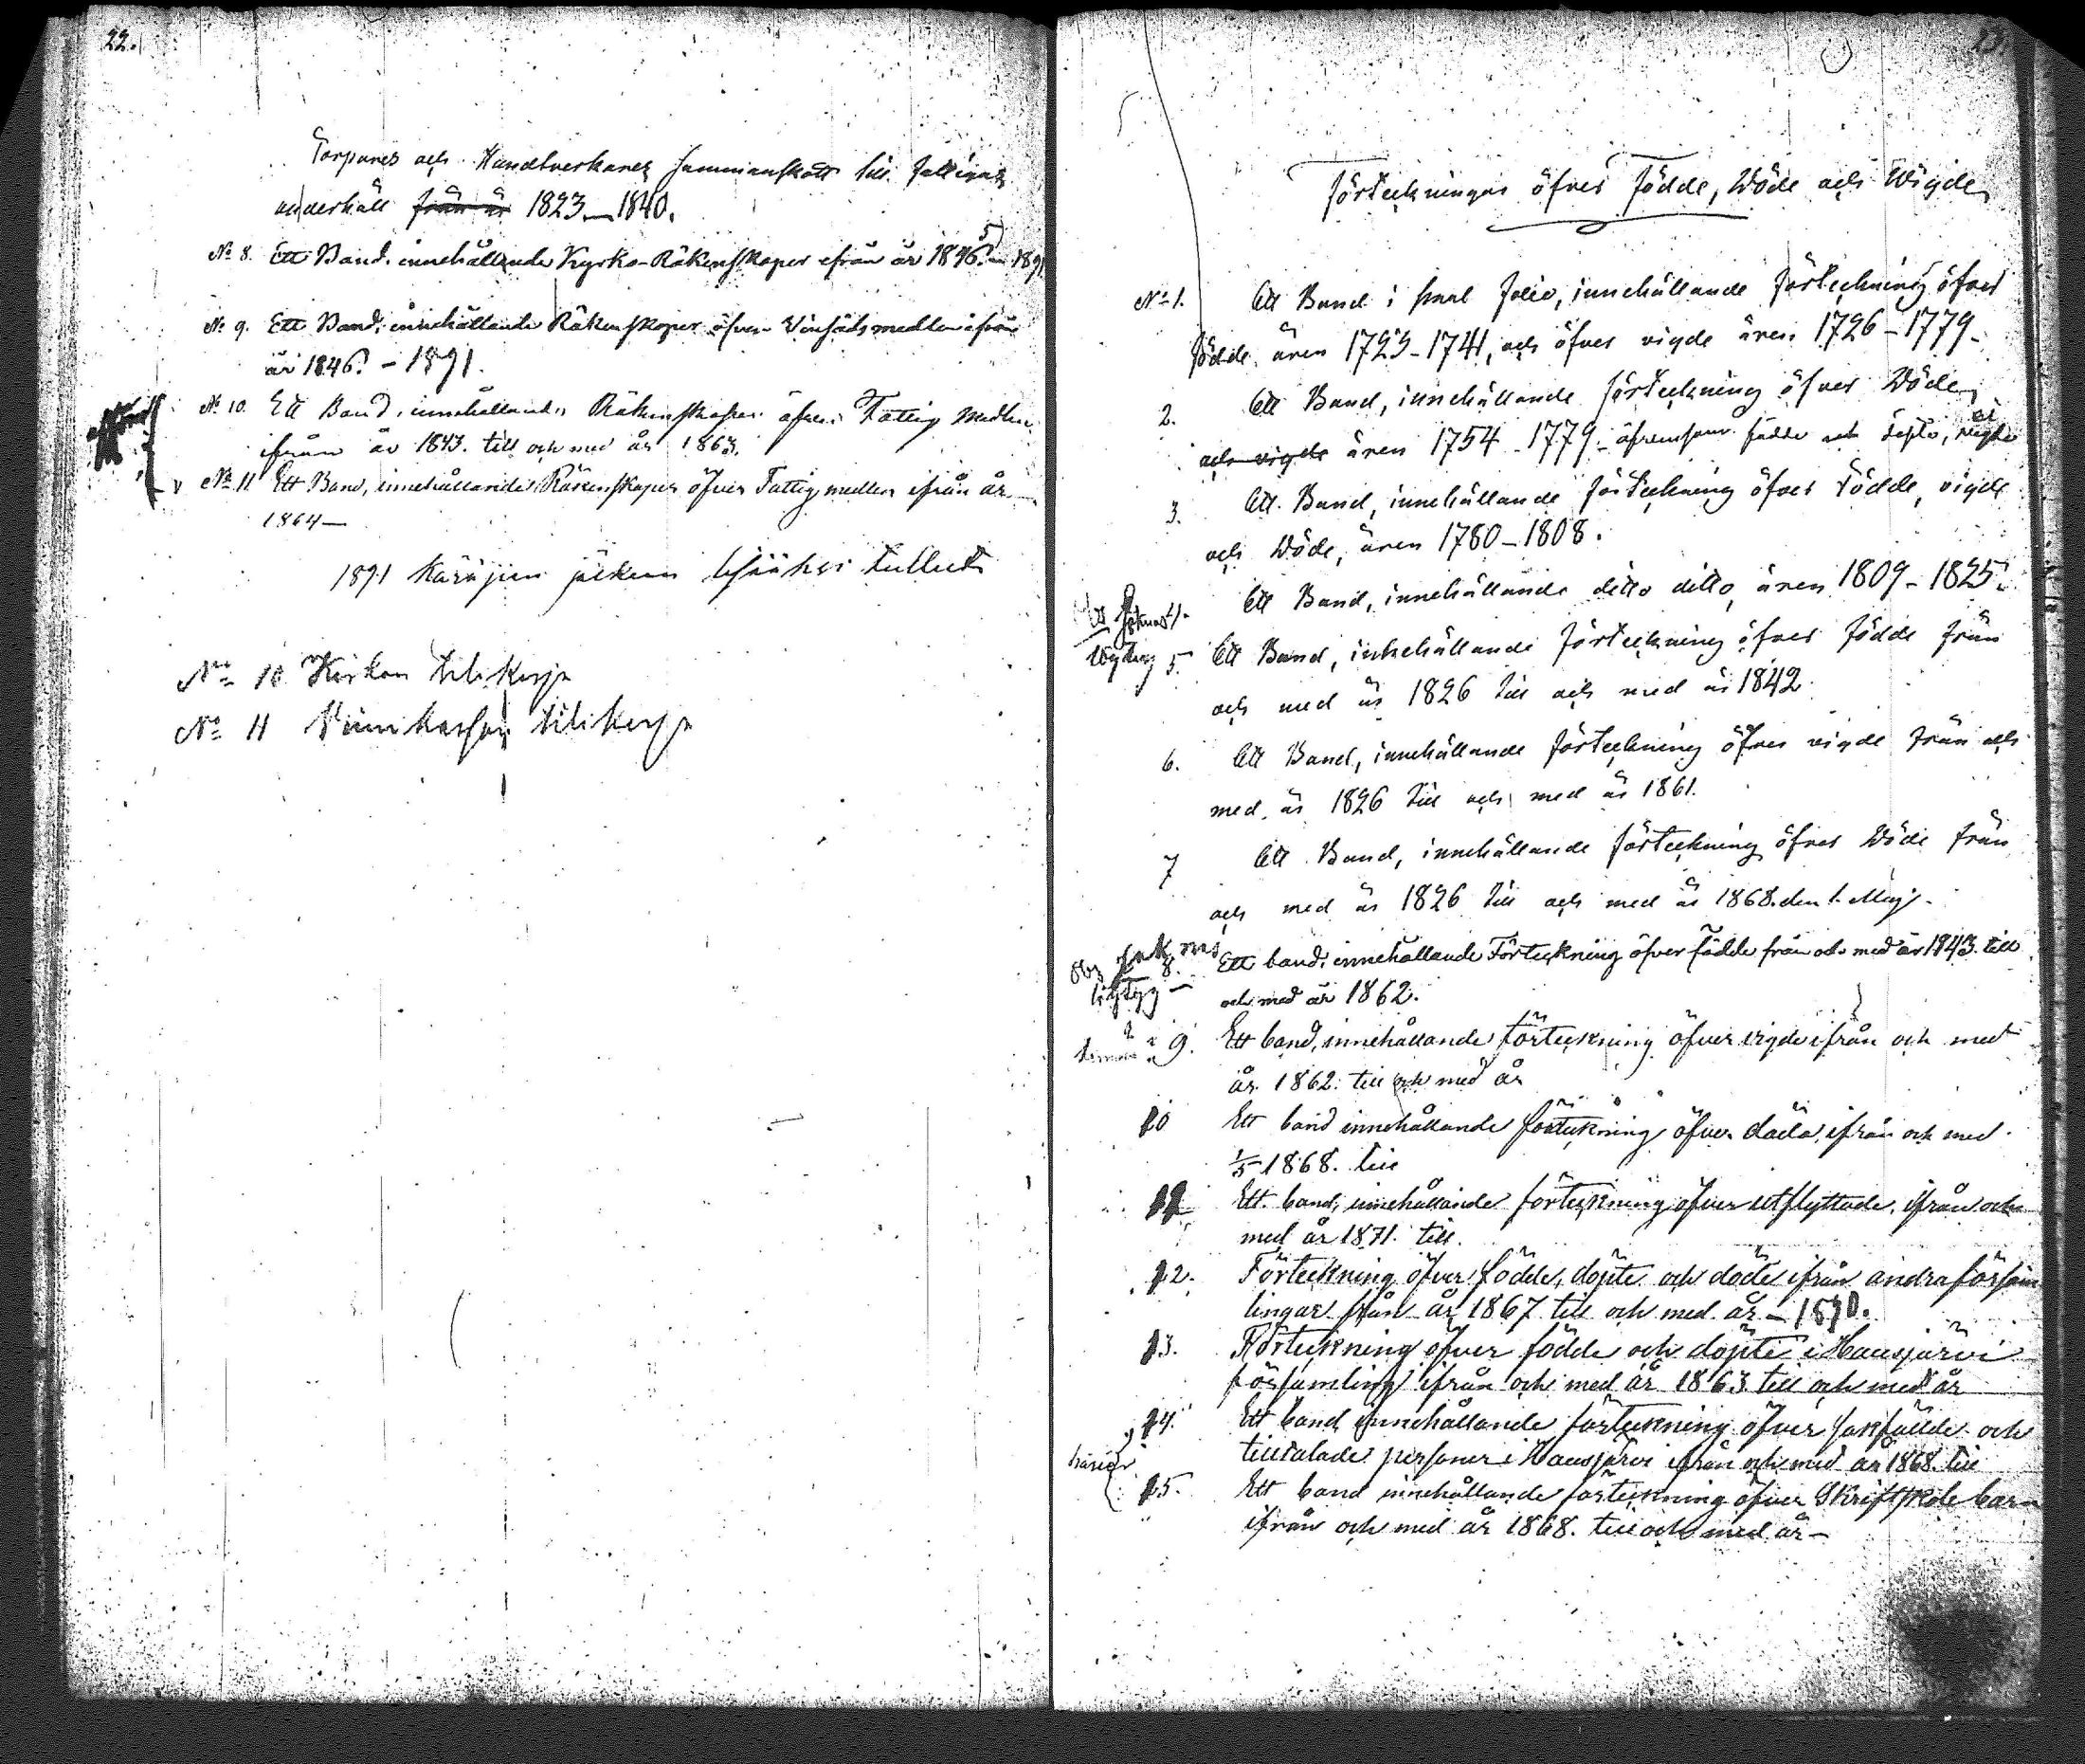 22.
Torpares och Handtverkares sammanskott till fattigas
underhåll från år 1823–1840.
No 8. Ett Band, innehållande Kyrko-Räkenskaper ifrån år 1846. – 1891
No 9. Ett Band, innehållande Räkenskaper öfver medlen ifrån
år 1846. – 1891.
No 10. Ett Band, innehållande Räkenskaper öfver Fattig medlen
ifrån år 1843. till och med år 1863.
No 11 Ett Band, innehållande Räkenskaper öfver Fattig medlen ifrån år
1864 –
1891 Käräjien jälkeen lisääksi tullut
No 10 Kirkon tilikirja
No 11 tilikirja
23.
Förteckningar öfver Födde, Döde och Wigde
No 1. Ett Band i smal folio, innehållande förteckning öfver
födde åren 1723–1741, och öfver vigde åren 1726–1779.
2. Ett Band, innehållande förteckning öfver Döde,
och vigde åren 1754–1779. äfvensom födde och döpte,
3. Ett Band, innehållande förteckning öfver Födde, vigde
och Döde, åren 1780–1808.
4. Ett Band, innehållande ditto ditto, åren 1809–1825.
5. Ett Band, innehållande förteckning öfver födde från
och med år 1826 till och med år 1842.
6. Ett Band, innehållande förteckning öfver vigde från och
med år 1826 till och med år 1861.
7 Ett Band, innehållande förteckning öfver Döde från
och med år 1826 till och med år 1868. den 1. Maj.
8. Ett band, innehållande Förteckning öfver födde från och med år 1843. till
och med år 1862.
9. Ett band, innehållande förteckning öfver vigde ifrån och med
år 1862. till och med år
10 Ett band innehållande förteckning öfver döda ifrån och med
1/5 1868. till
11 Ett band, innehållande förteckning öfver utflyttade, ifrån och
med år 1871. till.
12. Förteckning öfver födde, döpte och döde ifrån andra försam
lingar från år 1867 till och med år – 1890.
13. Förteckning öfver födde och döpte i Hausjärvi
församling ifrån och med år 1863 till och med år
14. Ett band innehållande förteckning öfver sakfällde och
tilltalade personer i Hausjärvi ifrån och med år 1868. till
15. Ett band innehållande förteckning öfver Skriftskole barn
ifrån och med år 1868. till och med år –